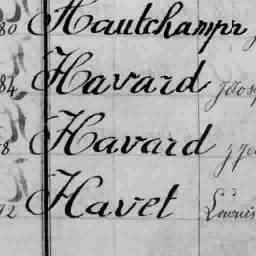 80 Hautchamps
84 Havard
8 Havard
Havet Louis